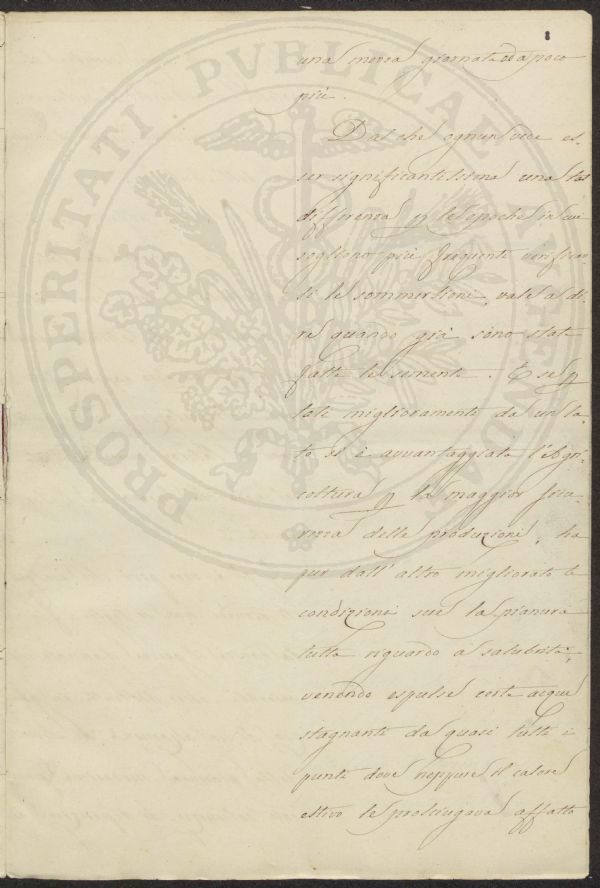 8
una mezza giornata od a poco
più.
Dal che ognun vede es-
ser significantissima una tal
differenza p le epoche in cui
sogliono più frequenti verificar
si le sommersioni, vale a di-
re quando già sono state
fatte le sementi. E se p
tale miglioramento da un la-
to si è avvantaggiata l'Agri-
coltura p la maggior sicu-
rezza delle produzioni, ha
pur dall'altro migliorato le
condizioni sue la pianura
tutta riguardo a salubrità,
venendo espulse certe acque
stagnanti da quasi tutti i
punti dove neppure il calore
estivo le prosciugava affatto
PROSPERITATI PVBLICAE AVGENDAE